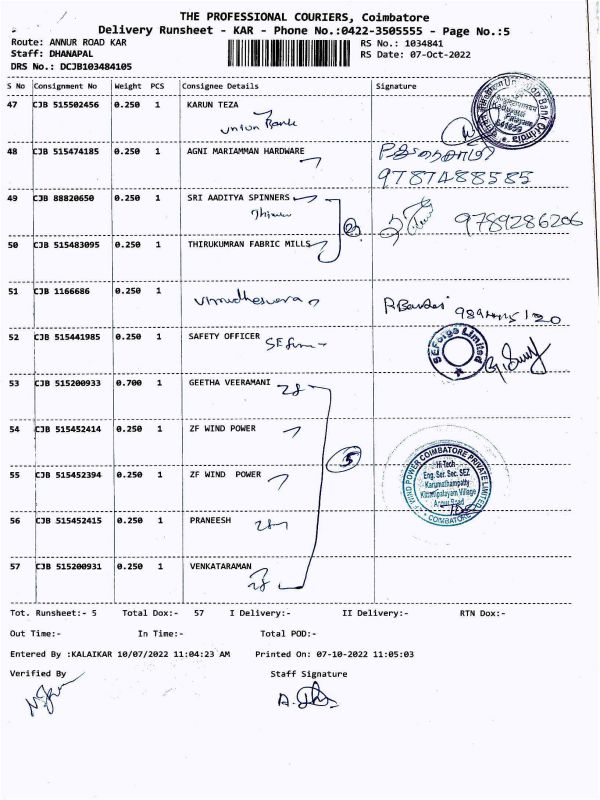 THE PROFESSIONAL COURIERS, Coimbatore
Delivery Runsheet - KAR - Phone No.:0422-3505555 - Page No.:5
Route: ANNUR ROAD KAR RS No.: 1034841
Staff: DHANAPAL RS Date: 07-Oct-2022
DRS No.: DCJB103484105
S No Consignment No Weight PCS Consignee Details Signature
47 CJB 515502456 0.250 1 KARUN TEZA
Union Bank
48 CJB 515474185 0.250 1 AGNI MARIAMMAN HARDWARE
9787488585
49 CJB 88820650 0.250 1 SRI AADITYA SPINNERS
9789286206
50 CJB 515483095 0.250 1 THIRUKUMRAN FABRIC MILLS
51 CJB 1166686 0.250 1
52 CJB 515441985 0.250 1 SAFETY OFFICER
SEForge Limited
53 CJB 515200933 0.700 1 GEETHA VEERAMANI
54 CJB 515452414 0.250 1 ZF WIND POWER
5
55 CJB 515452394 0.250 1 ZF WIND POWER
ZF WIND POWER COIMBATORE PRIVATE LIMITED
Hi Tech
Eng. Ser. Sec. SEZ
Karumathampatty
Kittampalayam Village
Annur Road
COIMBATORE
56 CJB 515452415 0.250 1 PRANEESH
57 CJB 515200931 0.250 1 VENKATARAMAN
Tot. Runsheet:- 5 Total Dox:- 57 I Delivery:- II Delivery:- RTN Dox:-
Out Time:- In Time:- Total POD:-
Entered By :KALAIKAR 10/07/2022 11:04:23 AM Printed On: 07-10-2022 11:05:03
Verified By Staff Signature